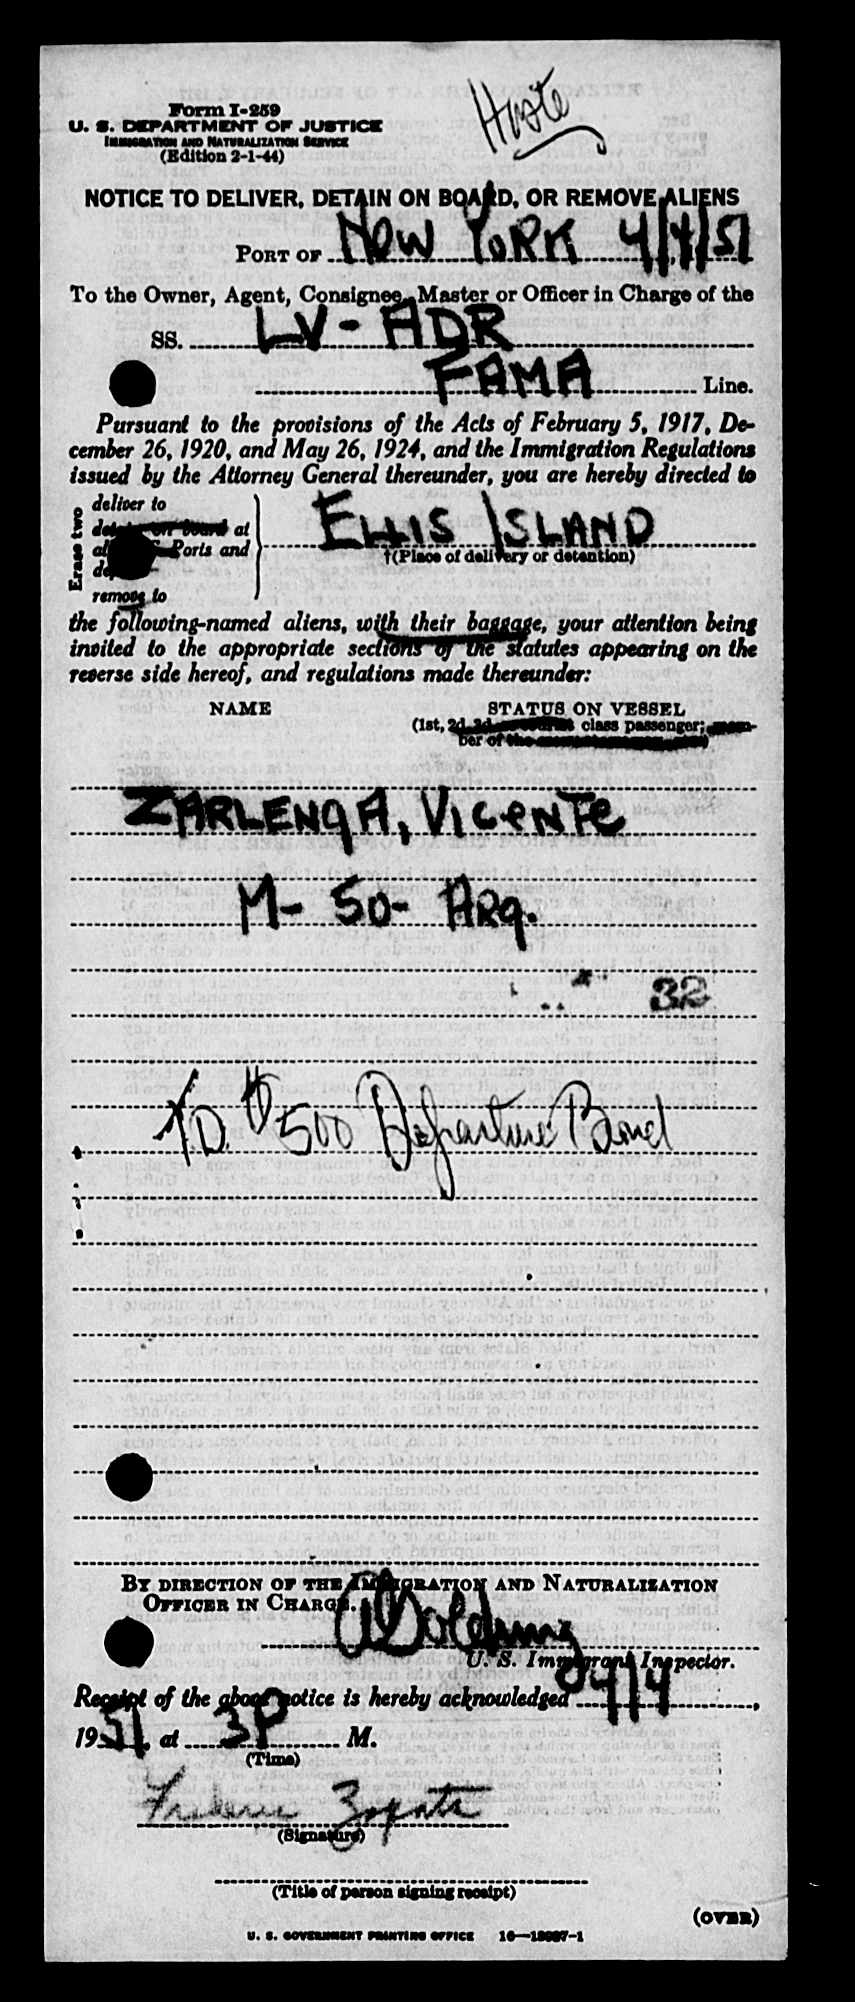 Form I-259
U. S. DEPARTMENT OF JUSTICE
IMMIGRATION AND NATURALIZATION SERVICE
(Edition 2-1-44)
NOTICE TO DELIVER, DETAIN ON BOARD, OR REMOVE ALIENS
PORT OF NEW YORK 4/4/51
To the Owner, Agent, Consignee, Master or Officer in Charge of the
SS. LV-ADR
FAMA Line.
Pursuant to the provisions of the Acts of February 5, 1917, De-
cember 26, 1920, and May 26, 1924, and the Immigration Regulations
issued by the Attorney General thereunder, you are hereby directed to
Erase two
deliver to
at
Ports and
remove to
ELLIS ISLAND
†(Place of delivery or detention)
the following-named aliens, with their baggage, your attention being
invited to the appropriate sections of the statutes appearing on the
reverse side hereof, and regulations made thereunder:
NAME STATUS ON VESSEL
(1st, 2d, 3d class passenger; mem-
ber of the
ZARLENGA, VICENTE
M- 50- ARG.
32
TD. $500 Departure Bond
BY DIRECTION OF THE IMMIGRATION AND NATURALIZATION
OFFICER IN CHARGE.
U. S. Immigrant Inspector.
Receipt of the above notice is hereby acknowledged 4/4,
1951, at 3P M.
(Time)
(Signature)
(Title of person signing receipt)
(OVER)
U. S. GOVERNMENT PRINTING OFFICE 16—18987-1